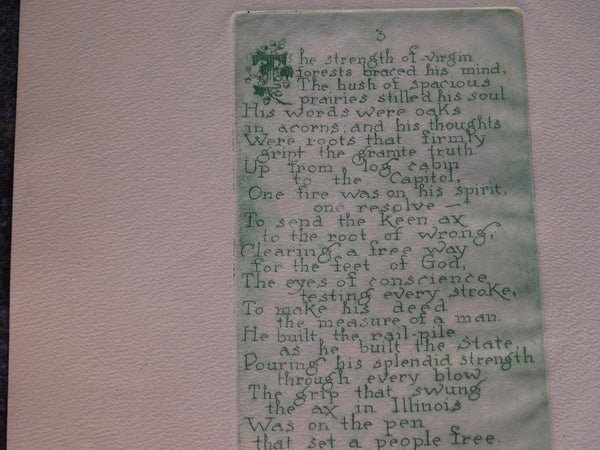 3
The strength of virgin
forests braced his mind,
The hush of spacious
prairies stilled his soul.
His words were oaks
in acorns; and his thoughts
Were roots that firmly
gript the granite truth.
Up from log cabin
to the Capitol,
One fire was on his spirit,
one resolve —
To send the keen ax
to the root of wrong,
Clearing a free way
for the feet of God,
The eyes of conscience
testing every stroke,
To make his deed
the measure of a man.
He built the rail-pile
as he built the State,
Pouring his splendid strength
through every blow:
The grip that swung
the ax in Illinois
Was on the pen
that set a people free.